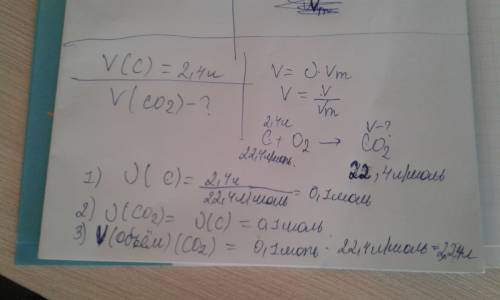 Vm
V(C) = 2,4л
V(CO2) - ?
V = υ · Vm
V = V/Vm
2,4л V-?
C + O2 → CO2
22,4л/моль 22,4л/моль
1) υ(C) = 2,4л / 22,4л/моль = 0,1моль
2) υ(CO2) = υ(C) = 0,1моль
3) V(объём)(CO2) = 0,1моль · 22,4л/моль = 2,24л